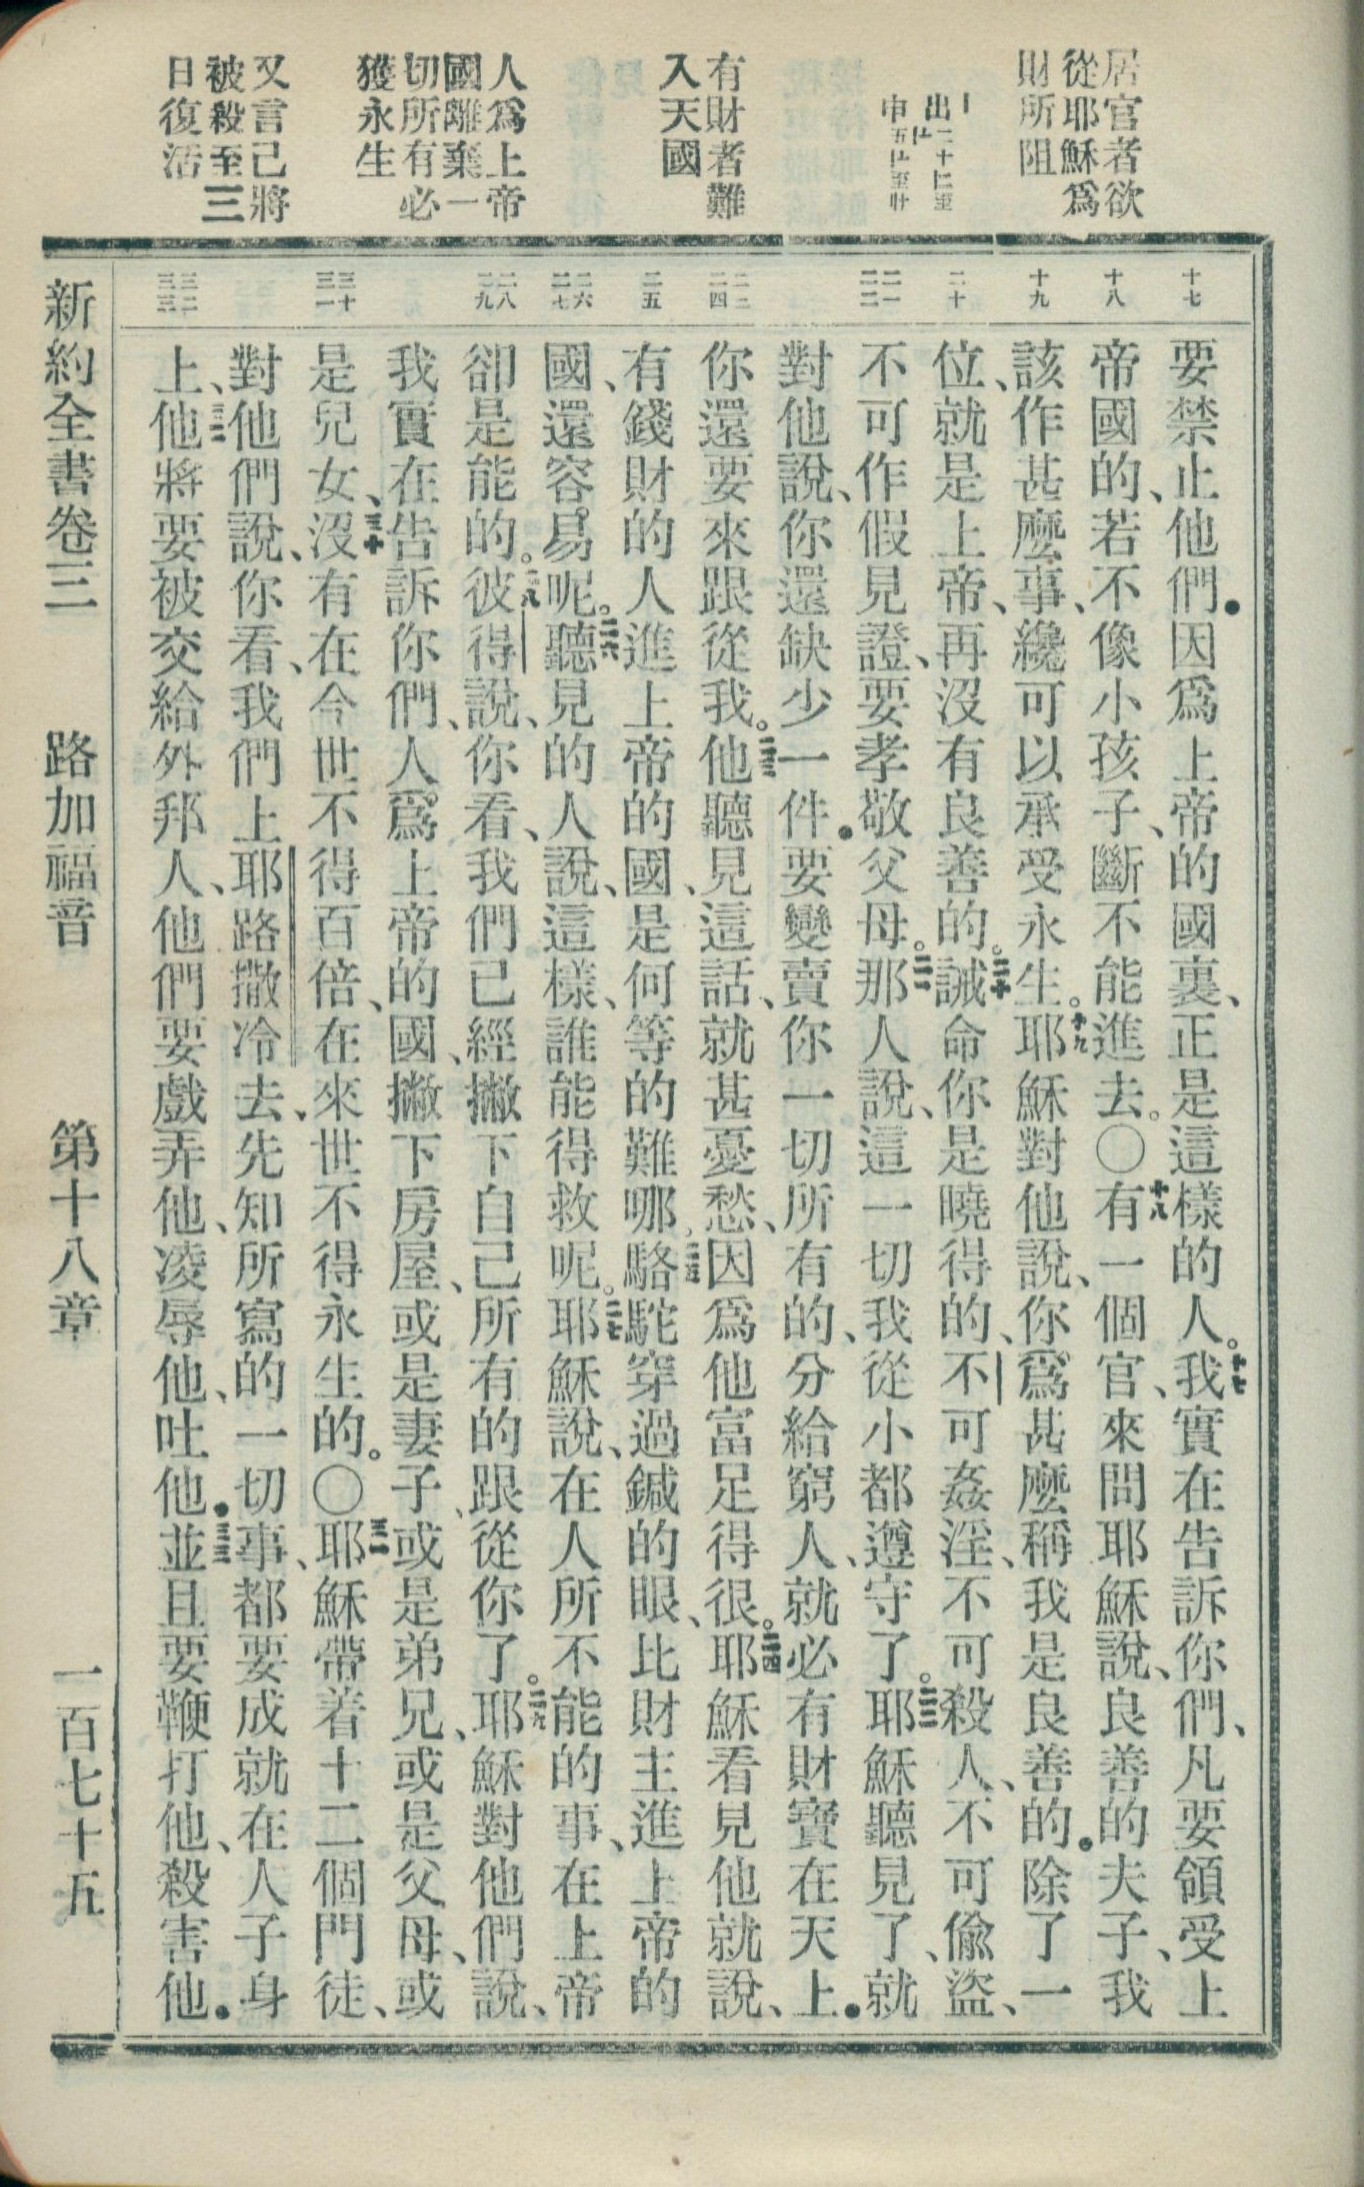 居官者欲
從耶穌爲
財所阻
有財者難
入天國
人爲上帝
國離棄一
切所有必
獲永生
又言己將
被殺至三
日復活
十七
十八
十九
二十
二一
二二
二三
二四
二五
二六
二七
二八
二九
三十
三一
三二
三三
要禁止他們．因爲上帝的國裏、正是這樣的人。十七我實在告訴你們、凡要領受上
帝國的、若不像小孩子、斷不能進去。〇十八有一個官、來問耶穌說、良善的夫子、我
該作甚麼事、纔可以承受永生。十九耶穌對他說、你爲甚麼稱我是良善的．除了一
位、就是上帝、再沒有良善的。二十誡命你是曉得的、不可姦淫、不可殺人、不可偷盜、
不可作假見證、要孝敬父母。二一那人說、這一切我從小都遵守了。二二耶穌聽見了、就
對他說、你還缺少一件．要變賣你一切所有的、分給窮人、就必有財寶在天上．
你還要來跟從我。二三他聽見這話、就甚憂愁、因爲他富足得很。二四耶穌看見他就說、
有錢財的人進上帝的國、是何等的難哪。二五駱駝穿過鍼的眼、比財主進上帝的
國、還容易呢。二六聽見的人說、這樣、誰能得救呢。二七耶穌說、在人所不能的事、在上帝
卻是能的。二八彼得說、你看、我們已經撇下自己所有的跟從你了。二九耶穌對他們說、
我實在告訴你們、人爲上帝的國、撇下房屋、或是妻子、或是弟兄、或是父母、或
是兒女、三十沒有在今世不得百倍、在來世不得永生的。〇三一耶穌帶着十二個門徒、
對他們說、你看、我們上耶路撒冷去、先知所寫的一切事、都要成就在人子身
上、三二他將要被交給外邦人、他們要戲弄他、凌辱他、吐他．三三並且要鞭打他、殺害他．
新約全書卷三　路加福音　第十八章　一百七十五